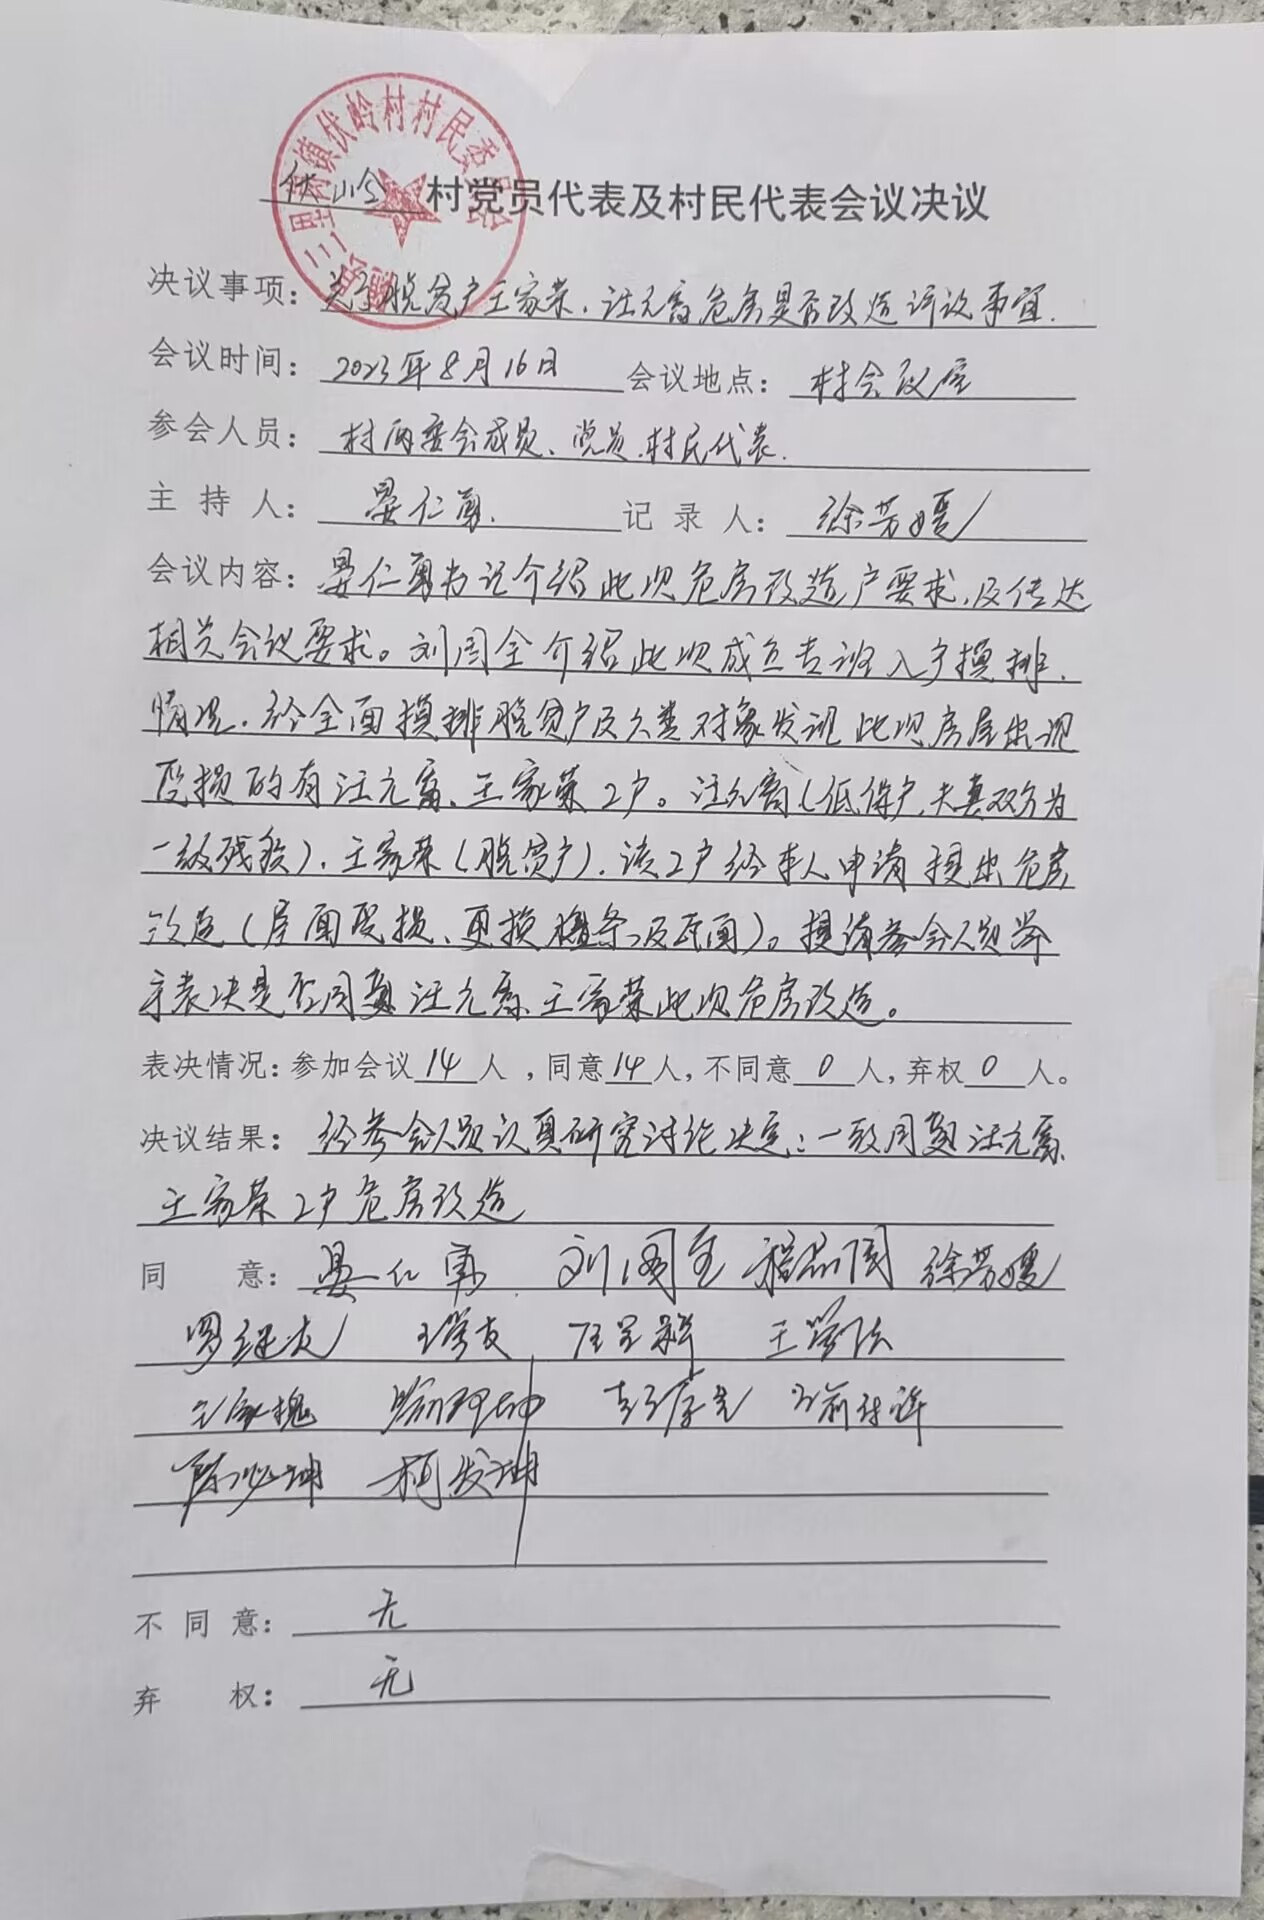 伏岭村党员代表及村民代表会议决议
镇伏岭村村民委员会
决议事项：关于脱贫户王家荣、汪元富危房是否改造评议事宜.
会议时间：2023年8月16日 会议地点：村会议室
参会人员：村两委会成员、党员、村民代表.
主持人：晏仁勇. 记录人：徐芳媛
会议内容：晏仁勇书记介绍此次危房改造户要求，及传达
相关会议要求。刘国全介绍此次成立专班入户摸排.
情况，经全面摸排脱贫户及六类对象发现此次房屋出现
受损的有汪元富、王家荣2户。汪元富（低保户，夫妻双方为
一级残疾），王家荣（脱贫户），该2户经本人申请提出危房
改造（屋面受损、更换檩条及瓦面）。提请参会人员举
手表决是否同意汪元富、王家荣此次危房改造。
表决情况：参加会议14人，同意14人，不同意0人，弃权0人。
决议结果：经参会人员认真研究讨论决定：一致同意汪元富、
王家荣2户危房改造
同意：晏仁勇 刘国全 程 国 徐芳媛
罗继友 王学友 王学
王家槐 坤
陈 坤 柯发坤
不同意：无
弃权：无